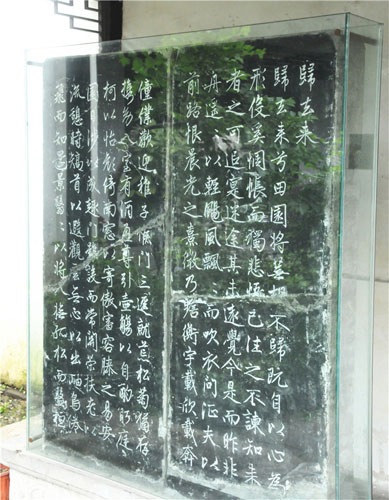 歸去来
歸去来兮田園將蕪胡不歸既自以心為
形役奚惆悵而獨悲悟已往之不諫知来
者之可追寔迷途其未遠覺今是而昨非
舟遥〻以輕颺風飄〻而吹衣问征夫以
前路恨晨光之熹微乃瞻衡宇載欣載奔
僮僕歡迎稚子候门三逕就荒松菊猶存
携幼入室有酒盈尊引壺觴以自酌眄庭
柯以怡顔倚南窓以寄傲審容膝之易安
園日涉以成趣门雖設而常關策扶老以
流憩時矯首以遐觀雲無心以出岫鳥倦
飛而知還景翳〻以將入撫孤松而盤桓